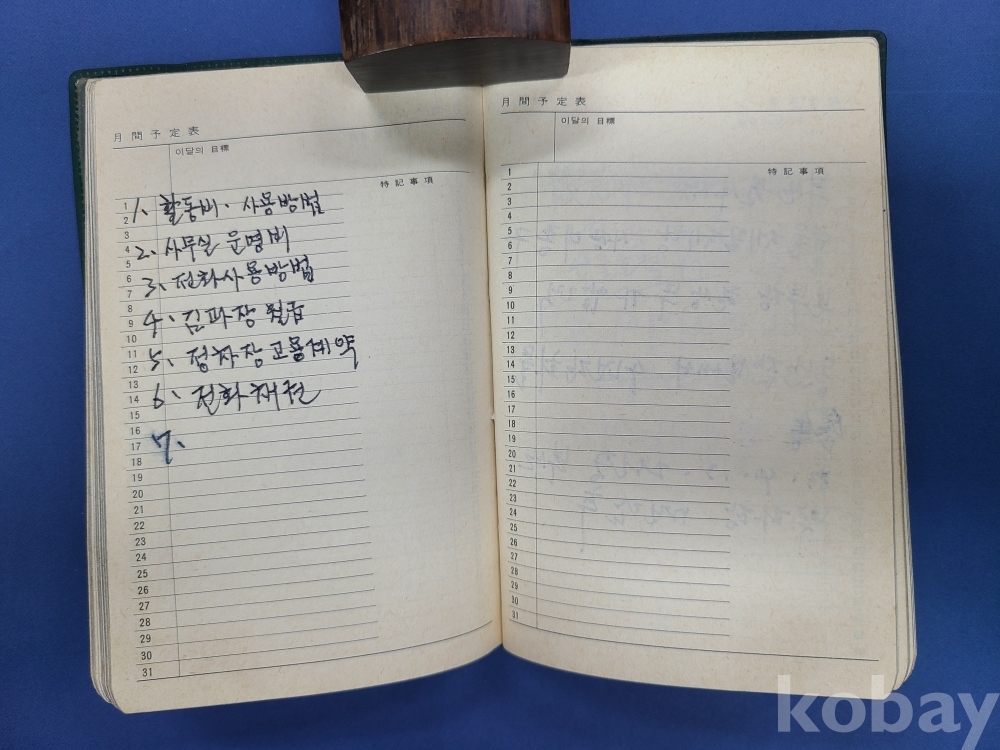 月間予定表
이달의 目標
特記事項
1
2
3
4
5
6
7
8
9
10
11
12
13
14
15
16
17
18
19
20
21
22
23
24
25
26
27
28
29
30
31
1. 활동비. 사용방법
2. 사무실 운영비
3. 전화사용방법
4. 김과장 월급
5. 정차장고용계약
6. 전화채권
7.
月間予定表
이달의 目標
特記事項
1
2
3
4
5
6
7
8
9
10
11
12
13
14
15
16
17
18
19
20
21
22
23
24
25
26
27
28
29
30
31
kobay